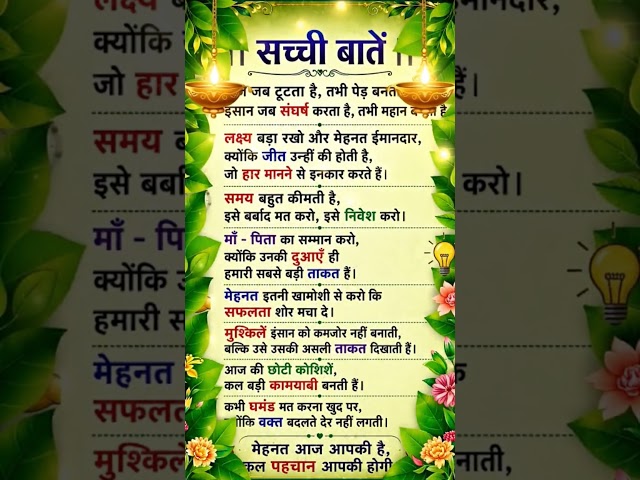 ।। सच्ची बातें ।।
जब टूटता है, तभी पेड़
इंसान जब संघर्ष करता है, तभी महान है
लक्ष्य बड़ा रखो और मेहनत ईमानदार,
क्योंकि जीत उन्हीं की होती है,
जो हार मानने से इनकार करते हैं।
समय बहुत कीमती है,
इसे बर्बाद मत करो, इसे निवेश करो।
माँ - पिता का सम्मान करो,
क्योंकि उनकी दुआएँ ही
हमारी सबसे बड़ी ताकत हैं।
मेहनत इतनी खामोशी से करो कि
सफलता शोर मचा दे।
मुश्किलें इंसान को कमजोर नहीं बनाती,
बल्कि उसे उसकी असली ताकत दिखाती हैं।
आज की छोटी कोशिशें,
कल बड़ी कामयाबी बनती हैं।
कभी घमंड मत करना खुद पर,
क्योंकि वक्त बदलते देर नहीं लगती।
मेहनत आज आपकी है,
कल पहचान आपकी होगी